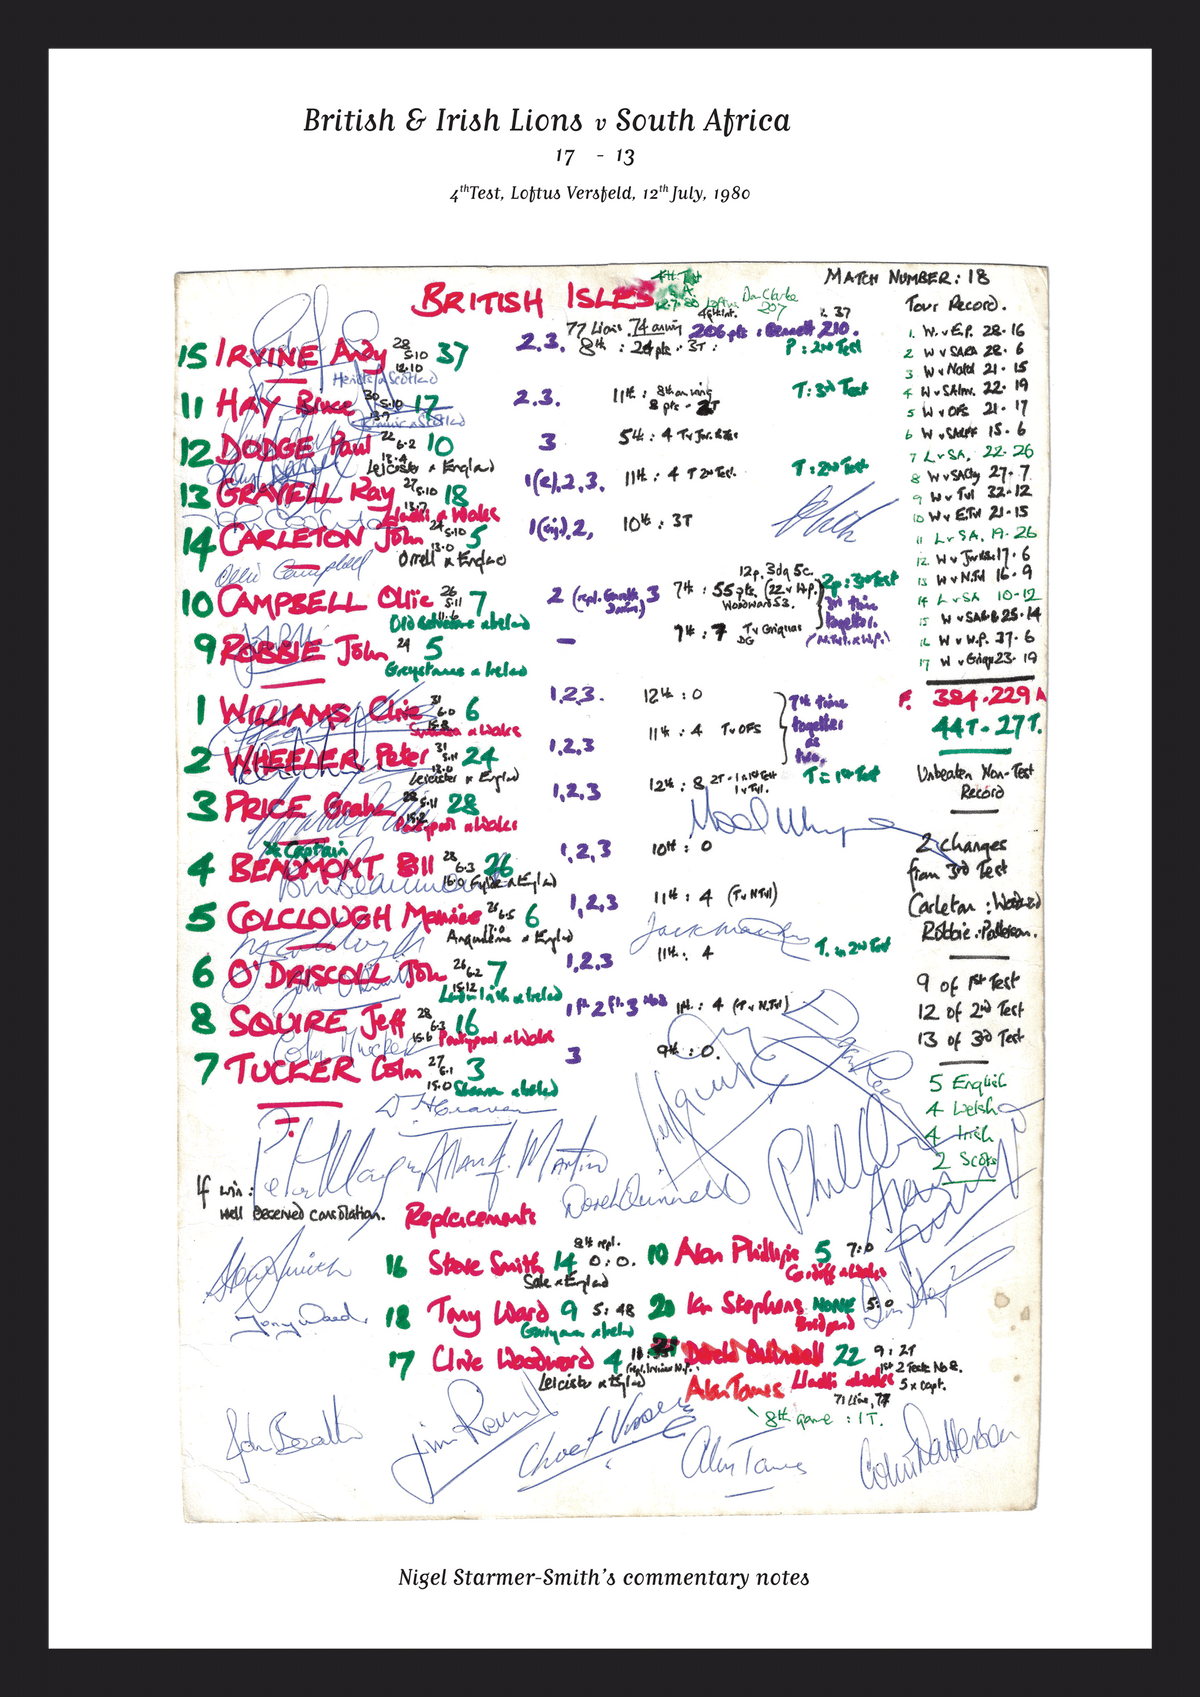 British & Irish Lions v South Africa
17 - 13
4th Test, Loftus Versfeld, 12th July, 1980
MATCH NUMBER: 18
BRITISH ISLES
4th Test
S.A.
Don Clarke
207
Tour Record.
77 Lions. 74 206 pts : Bennett 210.
15 IRVINE Andy 28 5.10 12.10 37 2.3. 8th : 24 pts . 3T : P : 2nd Test
Heriots & Scotland
11 HAY Bruce 30 5.10 13.7 17 2.3. 11th : 8th 8 pts - 2T T : 3rd Test
& Scotland
12 DODGE Paul 22 6.2 13.4 10 3 5th : 4
Leicester & England
13 GRAVELL Ray 27 5.10 13.7 18 1(R).2.3. 11th : 4 T 2nd Test. T : 2nd Test
Llanelli & Wales
14 CARLETON John 24 5.10 13.0 5 1 2, 10th : 3T
Orrell & England
Ollie Campbell
12p. 3dg 5c.
10 CAMPBELL Ollie 26 5.11 11.6 7 2 (repl. Gareth Davies) 3 7th : 55 pts. (22 v W.P.) 2p : 3rd Test
Woodward 53.
Old Belvedere & Ireland
3rd time together.
9 ROBBIE John 24 5 - 7th : 7 T v Griquas
DG
Greystones & Ireland
1. W. v E.P. 28-16
2 W v SARA 28-6
3 W v Natal 21-15
4 W v SAInv. 22-19
5 W v OFS 21-17
6 W v SARFF 15-6
7 L v SA. 22-26
8 W v SACby 27-7
9 W v Tvl 32-12
10 W v E.Tvl 21-15
11 L v SA. 19-26
12. W v Jnr 17-6
13 W v N.Tvl 16-9
14 L v SA 10-12
15 W v 25-14
16 W v W.P. 37-6
17 W v Griqu 23-19
F. 384-229 A
44T - 27T.
1 WILLIAMS Clive 31 6.0 15.8 6 1,2,3. 12th : 0
Swansea & Wales
7th time together as trio.
2 WHEELER Peter 31 5.11 13.0 24 1,2,3 11th : 4 T v OFS
Leicester & England
3 PRICE Graham 28 5.11 15.2 28 1,2,3 12th : 8 2T - 1 in 1st Test 1 v Tvl. T : 1st Test
Pontypool & Wales
Unbeaten Non-Test
Record
* Captain
4 BEAUMONT Bill 28 6.3 16.0 26 1,2,3 10th : 0
Fylde & England
2 changes
from 3rd Test
5 COLCLOUGH Maurice 26 6.5 6 1,2,3 11th : 4 (T v N.Tvl)
Angouleme & England
Carleton : Woodward
Robbie : Patterson.
6 O'DRISCOLL John 26 6.2 15.12 7 1,2,3 11th : 4 T. in 2nd Test
London Irish & Ireland
9 of 1st Test
12 of 2nd Test
13 of 3rd Test
8 SQUIRE Jeff 28 6.3 15.6 16 1 Fl. 2 Fl. 3 No8 11th : 4 (T v N.Tvl)
Pontypool & Wales
7 TUCKER Colm 27 6.1 15.0 3 3 9th : 0.
Shannon & Ireland
5 English
4 Welsh
4 Irish
2 Scots
If win :
well deserved consolation.
Derek Quinnell
Replacements
8th repl.
16 Steve Smith 14 0 : 0.
Sale & England
10 Alan Phillips 5 7:0
Cardiff & Wales
Steve Smith
Tony Ward
18 Tony Ward 9 5 : 48
Garryowen & Ireland
20 Ian Stephens NONE 5:0
Bridgend
17 Clive Woodward 4
Leicester & England
21 Derek Quinnell 22 9 : 2T
1st 2 Tests No 8.
5 x Capt.
Llanelli & Wales
Alan Tomes
8th game : 1T.
John Beattie
Alan Tomes
Colm Patterson
Nigel Starmer-Smith's commentary notes